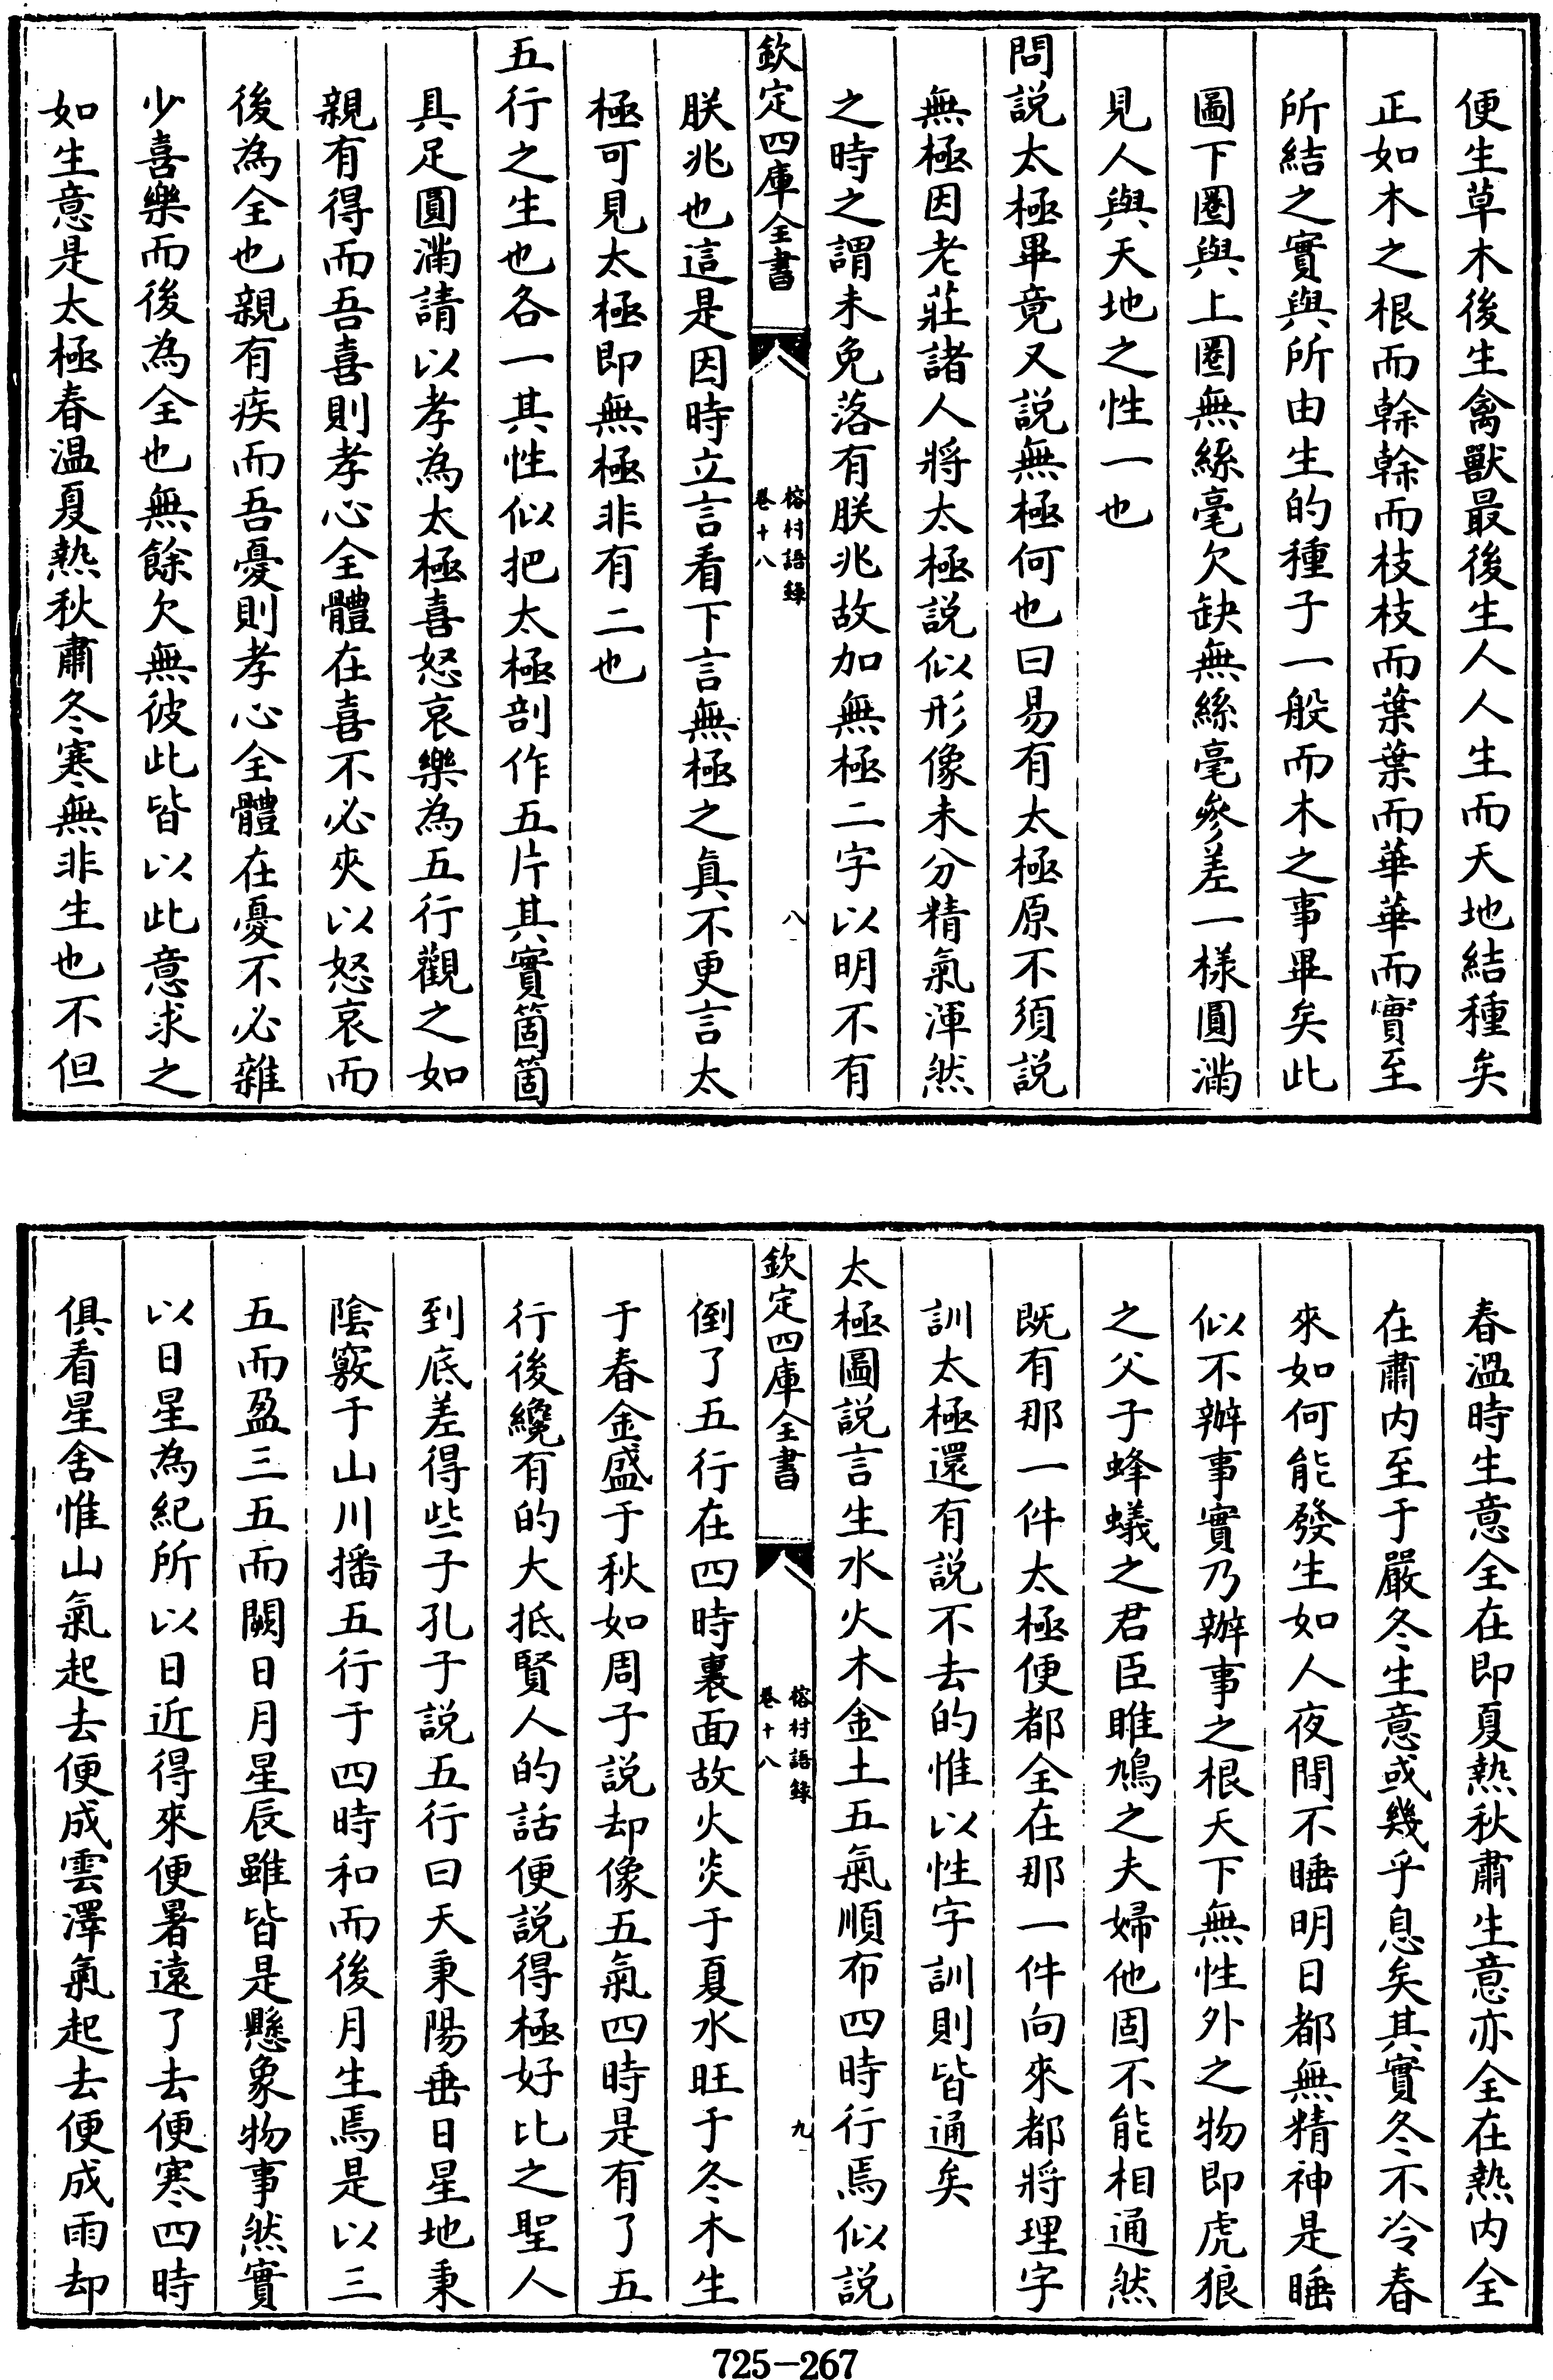 便生草木後生禽獸最後生人人生而天地結種矣
正如木之根而榦榦而枝枝而葉葉而華華而實至
所結之實與所由生的種子一般而木之事畢矣此
圖下圈與上圈無絲毫欠缺無絲毫參差一樣圓滿
見人與天地之性一也
問説太極畢竟又説無極何也曰易有太極原不須説
無極因老莊諸人將太極説似形像未分精氣渾然
之時之謂未免落有朕兆故加無極二字以明不有
欽定四庫全書
榕村語録
卷十八
八
朕兆也這是因時立言看下言無極之真不更言太
極可見太極即無極非有二也
五行之生也各一其性似把太極剖作五片其實箇箇
具足圓滿請以孝為太極喜怒哀樂為五行觀之如
親有得而吾喜則孝心全體在喜不必夾以怒哀而
後為全也親有疾而吾憂則孝心全體在憂不必雜
少喜樂而後為全也無餘欠無彼此皆以此意求之
如生意是太極春温夏熱秋肅冬寒無非生也不但
春温時生意全在即夏熱秋肅生意亦全在熱内全
在肅内至于嚴冬生意或幾乎息矣其實冬不冷春
來如何能發生如人夜間不睡明日都無精神是睡
似不辦事實乃辦事之根天下無性外之物即虎狼
之父子蜂蟻之君臣雎鳩之夫婦他固不能相通然
既有那一件太極便都全在那一件向來都將理字
訓太極還有説不去的惟以性字訓則皆通矣
太極圖説言生水火木金土五氣順布四時行焉似説
欽定四庫全書
榕村語録
卷十八
九
倒了五行在四時裏面故火炎于夏水旺于冬木生
于春金盛于秋如周子説却像五氣四時是有了五
行後纔有的大抵賢人的話便説得極好比之聖人
到底差得些子孔子説五行曰天秉陽垂日星地秉
陰竅于山川播五行于四時和而後月生焉是以三
五而盈三五而闕日月星辰雖皆是懸象物事然實
以日星為紀所以日近得來便暑遠了去便寒四時
俱看星舍惟山氣起去便成雲澤氣起去便成雨却
725-267